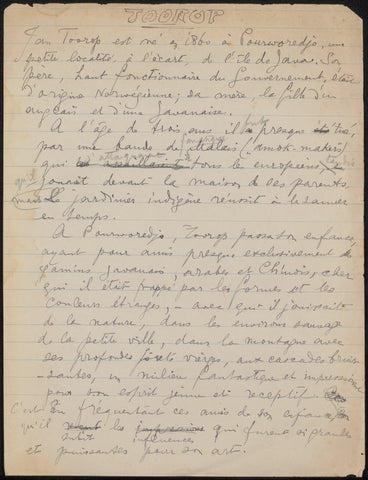 TOOROP
Jan Toorop est né en 1860 à Pourworedjo, une
petite localité, à l'écart, de l'île de Java. Son
père, haut fonctionnaire du Gouvernement, était
d'origine Norvégienne; sa mère, la fille d'un
anglais et d'une Javanaise.
A l'âge de trois ans il fut presque tué,
par une bande de Malais (amok-makers)
qui attaquaient tous les européens,
qu'il jouait devant la maison de ses parents.
mais le jardinier indigène réussit à le sauver
en temps.
A Pourworedjo, Toorop passa son enfance,
ayant pour amis presque exclusivement des
gamins javanais, arabes et Chinois, chez
qui il était frappé par les formes et les
couleurs étranges, - avec qui il jouissait
de la nature, dans les environs sauvages
de la petite ville, dans la montagne avec
ses profondes forêts vierges, aux cascades bruis-
santes, un milieu fantastique et impressionnant
pour son esprit jeune et receptif.
C'est en fréquentant ces amis de son enfance,
qu'il subit les influences qui furent si grandes
et puissantes pour son art.